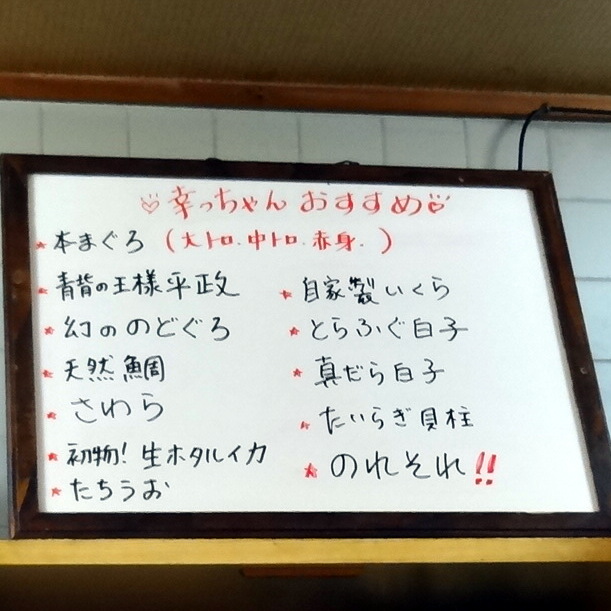 幸っちゃん おすすめ
本まぐろ (大トロ.中トロ.赤身.)
青背の王様平政
幻ののどぐろ
天然鯛
さわら
初物!生ホタルイカ
たちうお
自家製いくら
とらふぐ白子
真だら白子
たいらぎ貝柱
のれそれ!!